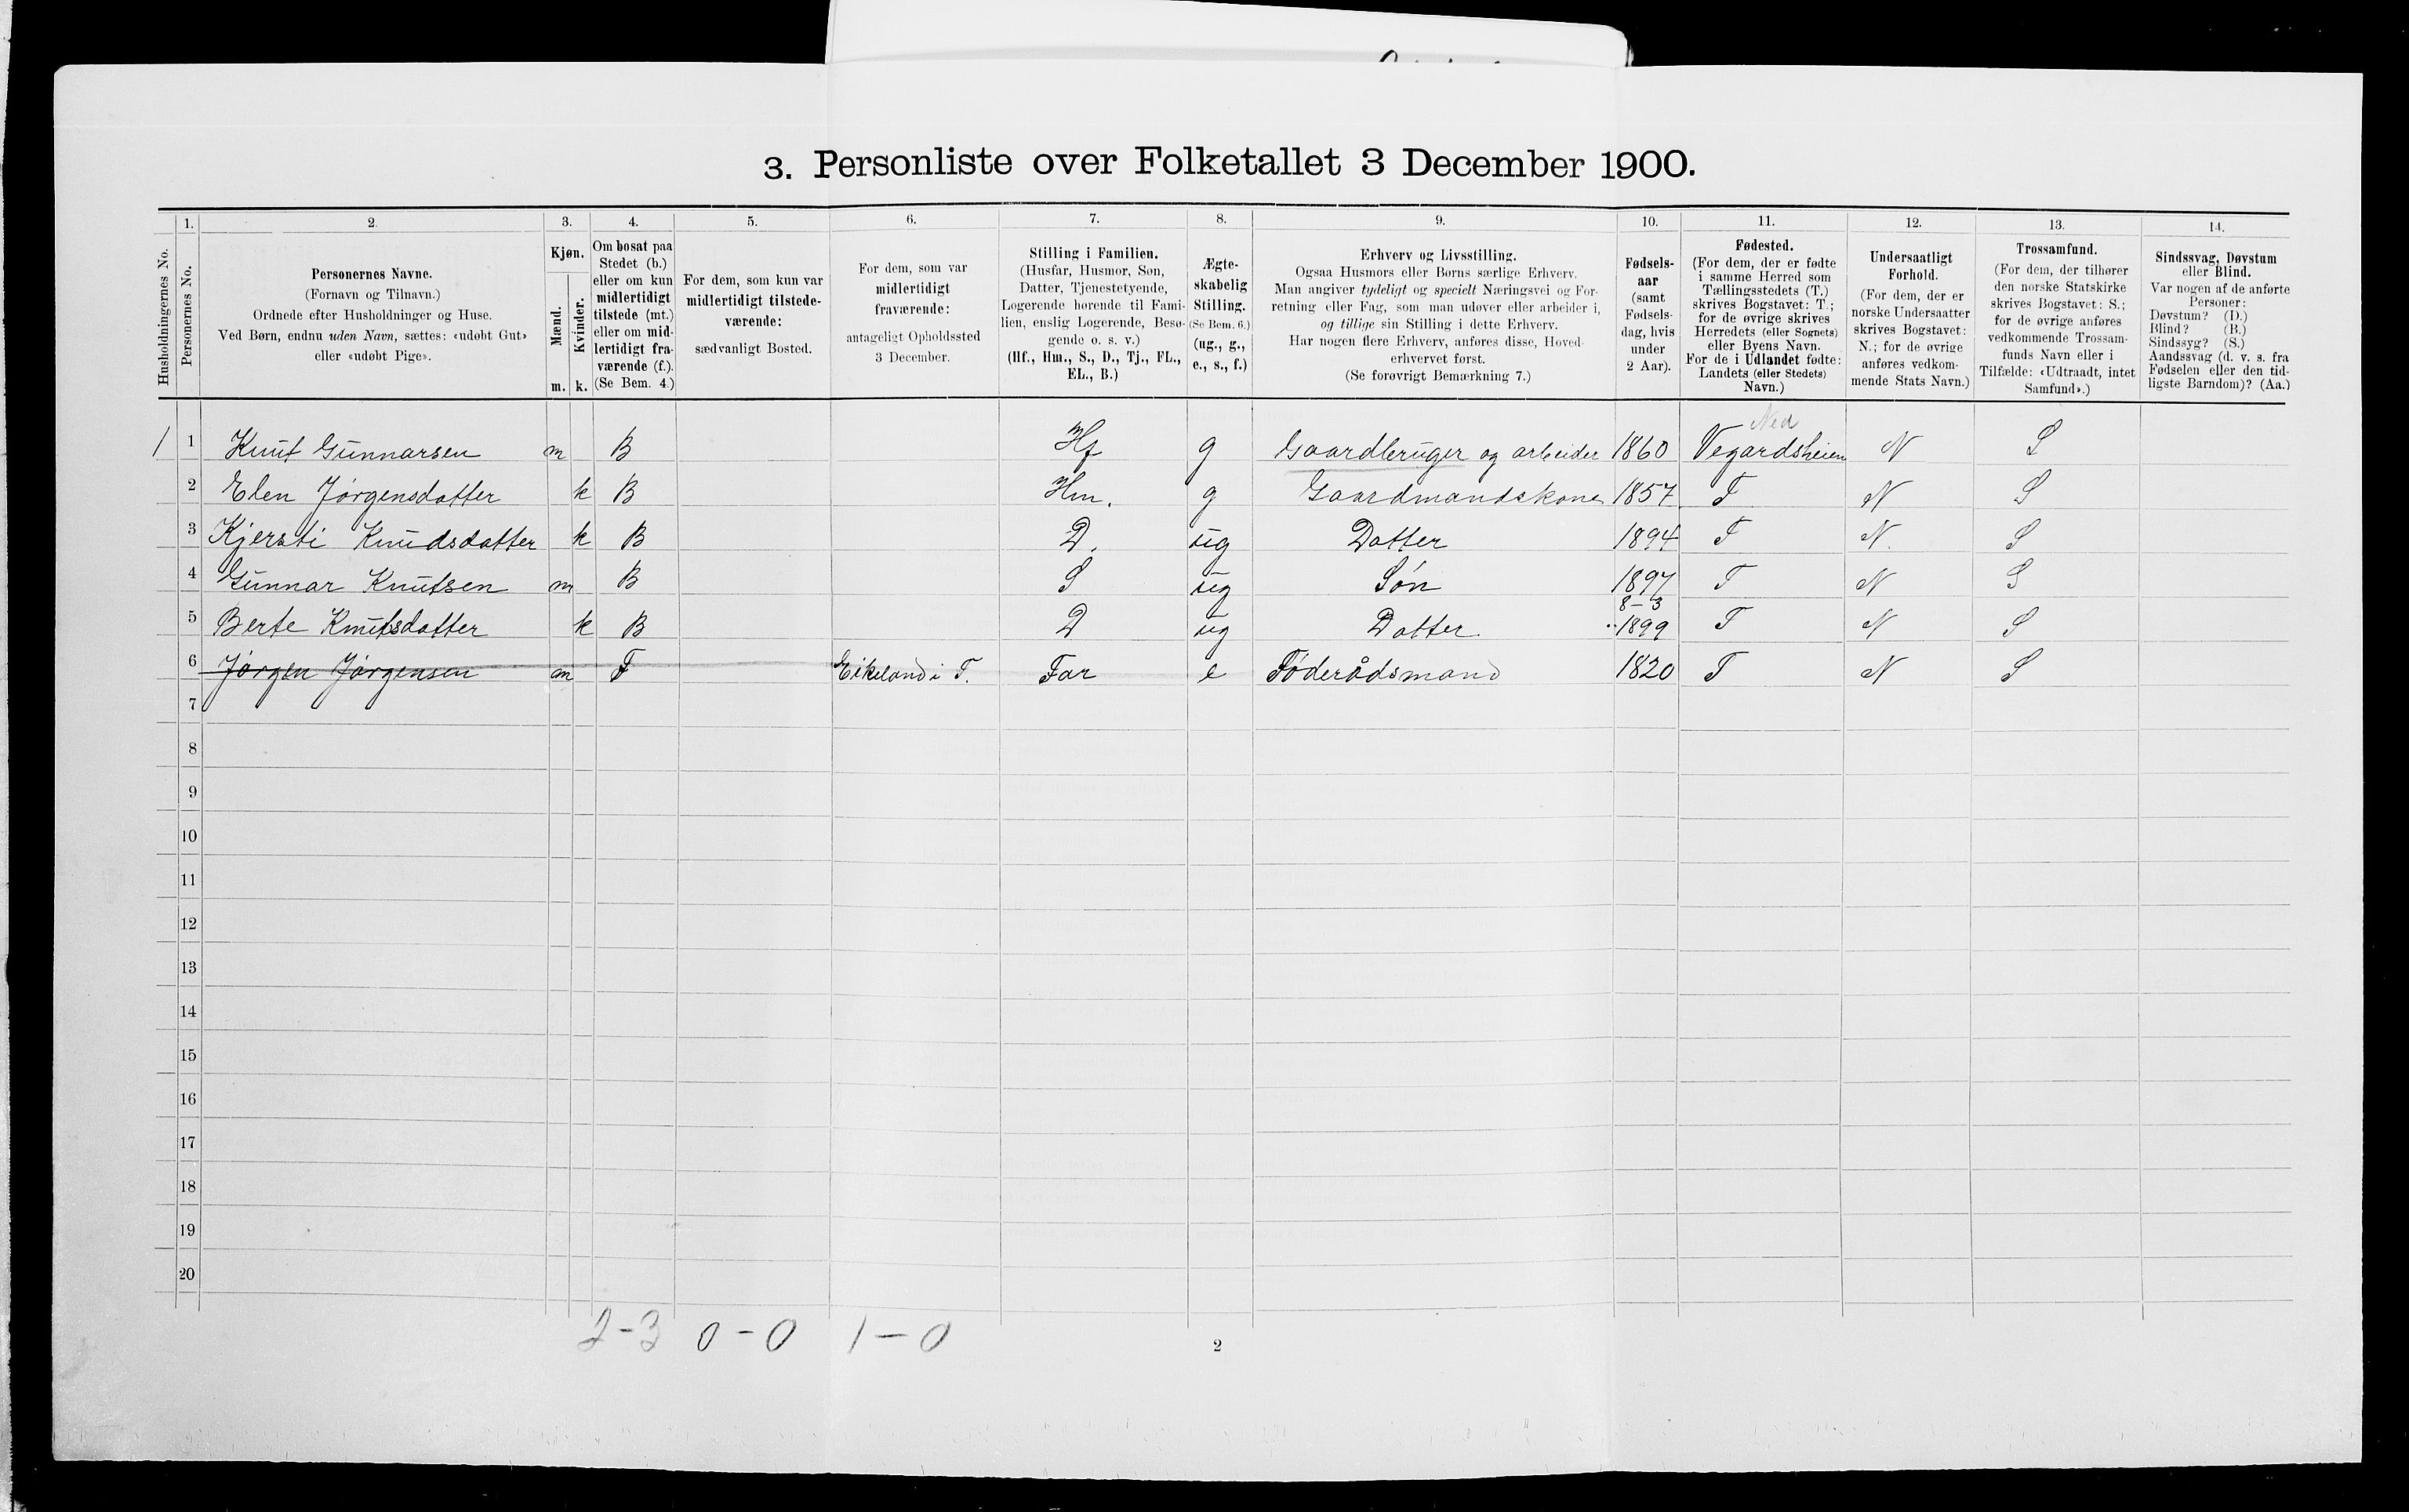 3. Personliste over Folketallet 3 December 1900.
1. 2. 3. 4. 5. 6. 7. 8. 9. 10. 11. 12. 13. 14.
Husholdningernes No.
Personernes No.
Personernes Navne.
(Fornavn og Tilnavn.)
Ordnede efter Husholdninger og Huse.
Ved Børn, endnu uden Navn, sættes: «udøbt Gut»
eller «udøbt Pige».
Kjøn.
Mænd.
Kvinder.
m. k.
Om bosat paa
Stedet (b.)
eller om kun
midlertidigt
tilstede (mt.)
eller om mid-
lertidigt fra-
værende (f.).
(Se Bem. 4.)
For dem, som kun var
midlertidigt tilstede-
værende:
sædvanligt Bosted.
For dem, som var
midlertidigt
fraværende:
antageligt Opholdssted
3 December.
Stilling i Familien.
(Husfar, Husmor, Søn,
Datter, Tjenestetyende,
Logerende hørende til Fami-
lien, enslig Logerende, Besø-
gende o. s. v.)
(Hf., Hm., S., D., Tj., FL.,
EL., B.)
Ægte-
skabelig
Stilling.
(Se Bem. 6.)
(ug., g.,
e., s., f.)
Erhverv og Livsstilling.
Ogsaa Husmors eller Børns særlige Erhverv.
Man angiver tydeligt og specielt Næringsvei og For-
retning eller Fag, som man udøver eller arbeider i,
og tillige sin Stilling i dette Erhverv.
Har nogen flere Erhverv, anføres disse, Hoved-
erhvervet først.
(Se forøvrigt Bemærkning 7.)
Fødsels-
aar
(samt
Fødsels-
dag, hvis
under
2 Aar).
Fødested.
(For dem, der er fødte
i samme Herred som
Tællingsstedets (T.)
skrives Bogstavet: T.;
for de øvrige skrives
Herredets (eller Sognets)
eller Byens Navn.
For de i Udlandet fødte:
Landets (eller Stedets)
Navn.)
Undersaatligt
Forhold.
(For dem, der er
norske Undersaatter
skrives Bogstavet:
N.; for de øvrige
anføres vedkom-
mende Stats Navn.)
Trossamfund.
(For dem, der tilhører
den norske Statskirke
skrives Bogstavet: S.;
for de øvrige anføres
vedkommende Trossam-
funds Navn eller i
Tilfælde: «Udtraadt, intet
Samfund».)
Sindssvag, Døvstum
eller Blind.
Var nogen af de anførte
Personer:
Døvstum? (D.)
Blind? (B.)
Sindssyg? (S.)
Aandssvag (d. v. s. fra
Fødselen eller den tid-
ligste Barndom)? (Aa.)
Ned
1 1 Knut Gunnarsen m B Hf g Gaardbruger og arbeider 1860 Vegardsheien N S
2 Elen Jørgensdatter k B Hm. g Gaardmandskone 1857 T N S
3 Kjersti Knudsdatter k B D. ug Datter 1894 T N. S
4 Gunnar Knutsen m B S ug Søn 1897 T N S
8-3
5 Berte Knutsdatter k B D ug Datter 1899 T N S
6 Jørgen Jørgensen m F Eikeland i T. Far e Føderådsmand 1820 T N S
7
8
9
10
11
12
13
14
15
16
17
18
19
20
2-3 0-0 1-0
2